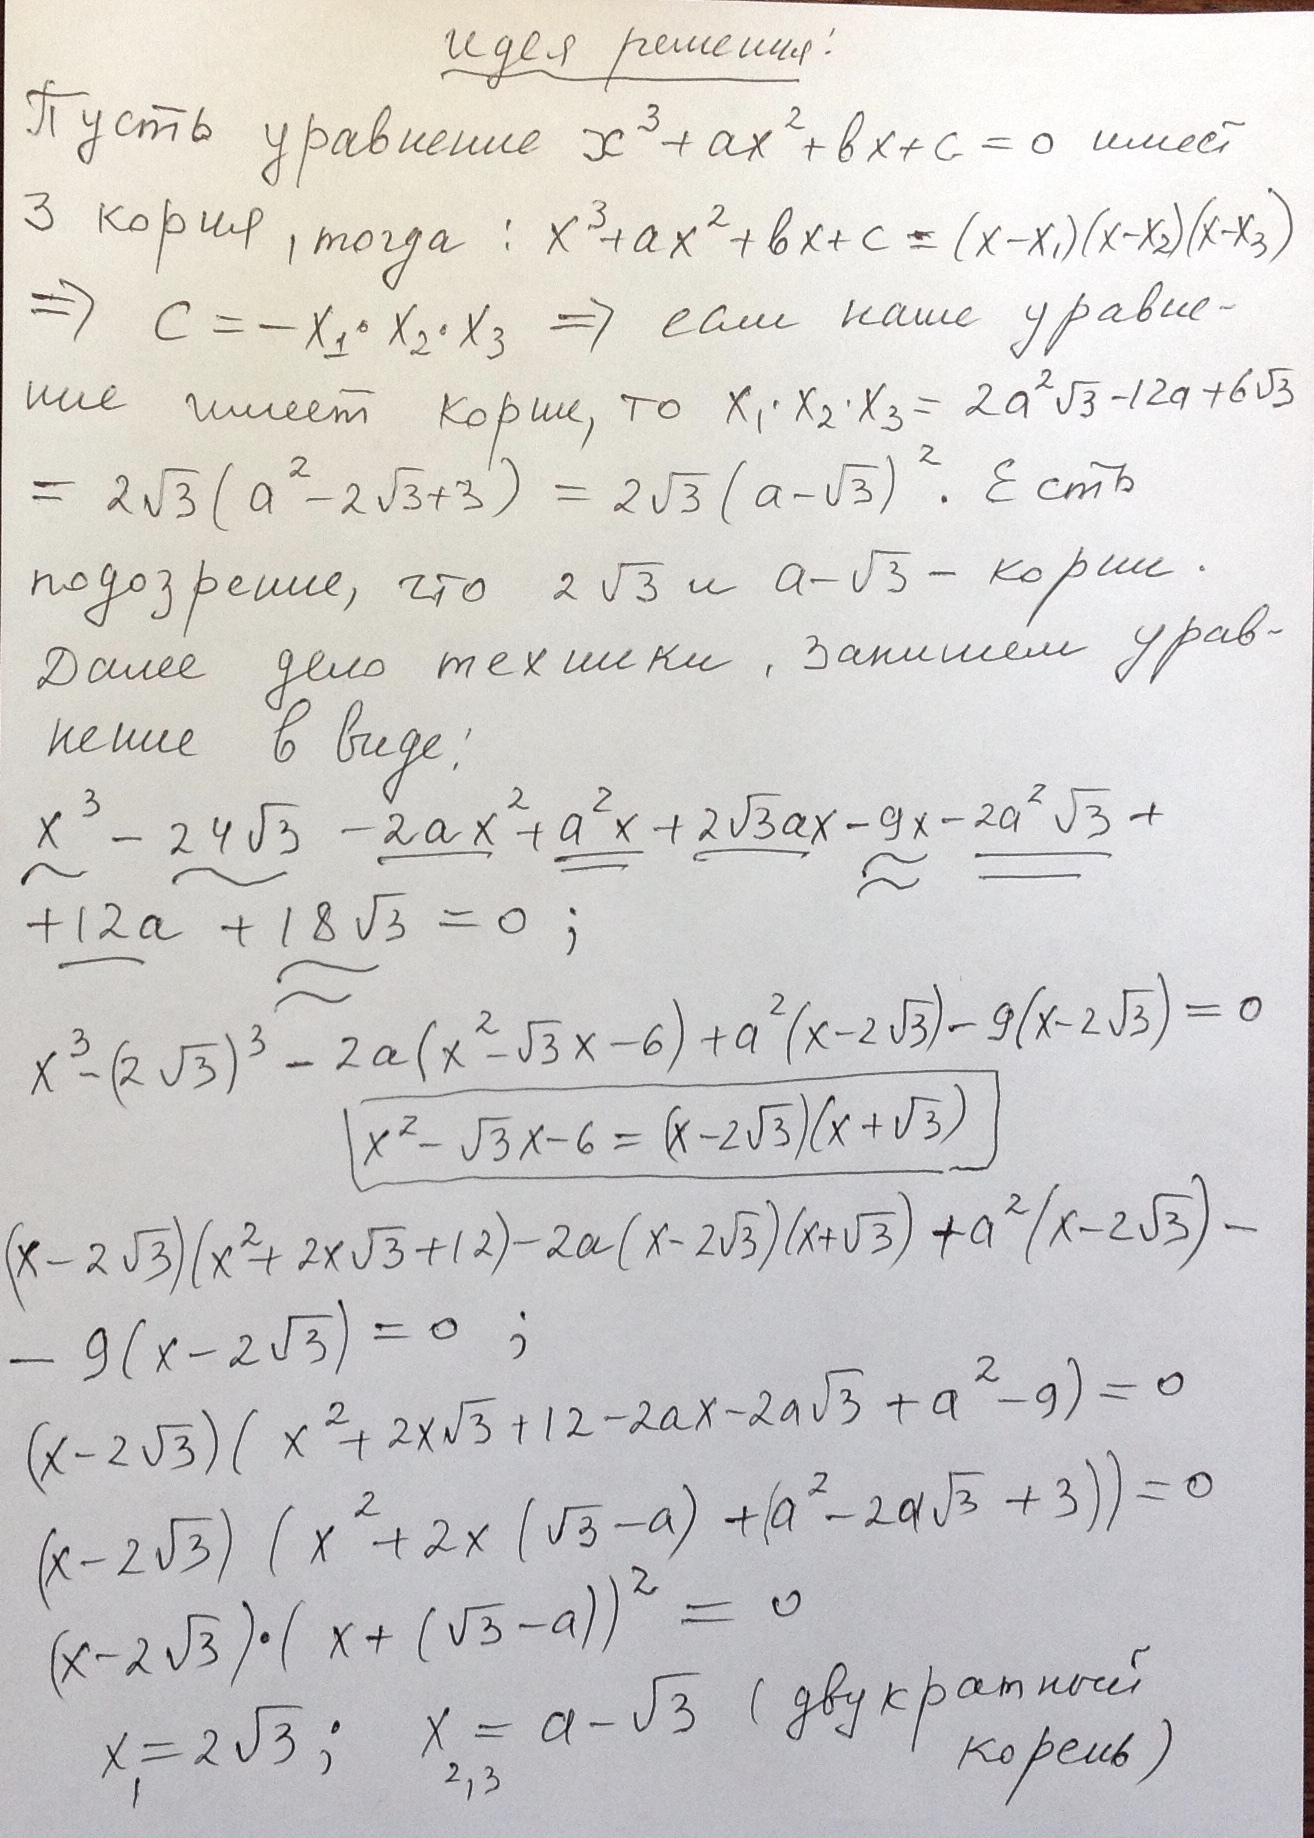 идея решения:
Пусть уравнение x³+ax²+bx+c=0 имеет
3 корня, тогда: x³+ax²+bx+c=(x-x₁)(x-x₂)(x-x₃)
=> c=-x₁·x₂·x₃ => если наше уравне-
ние имеет корни, то x₁·x₂·x₃=2a²√3-12a+6√3
= 2√3(a²-2√3+3) = 2√3(a-√3)². Есть
подозрение, что 2√3 и a-√3 - корни.
Далее дело техники, запишем урав-
нение в виде:
x³-24√3-2ax²+a²x+2√3ax-9x-2a²√3+
+12a+18√3=0;
x³-(2√3)³-2a(x²-√3x-6)+a²(x-2√3)-9(x-2√3)=0
x²-√3x-6=(x-2√3)(x+√3)
(x-2√3)(x²+2x√3+12)-2a(x-2√3)(x+√3)+a²(x-2√3)-
-9(x-2√3)=0;
(x-2√3)(x²+2x√3+12-2ax-2a√3+a²-9)=0
(x-2√3)(x²+2x(√3-a)+(a²-2a√3+3))=0
(x-2√3)·(x+(√3-a))²=0
x₁=2√3; x₂,₃=a-√3 (двукратный
корень)